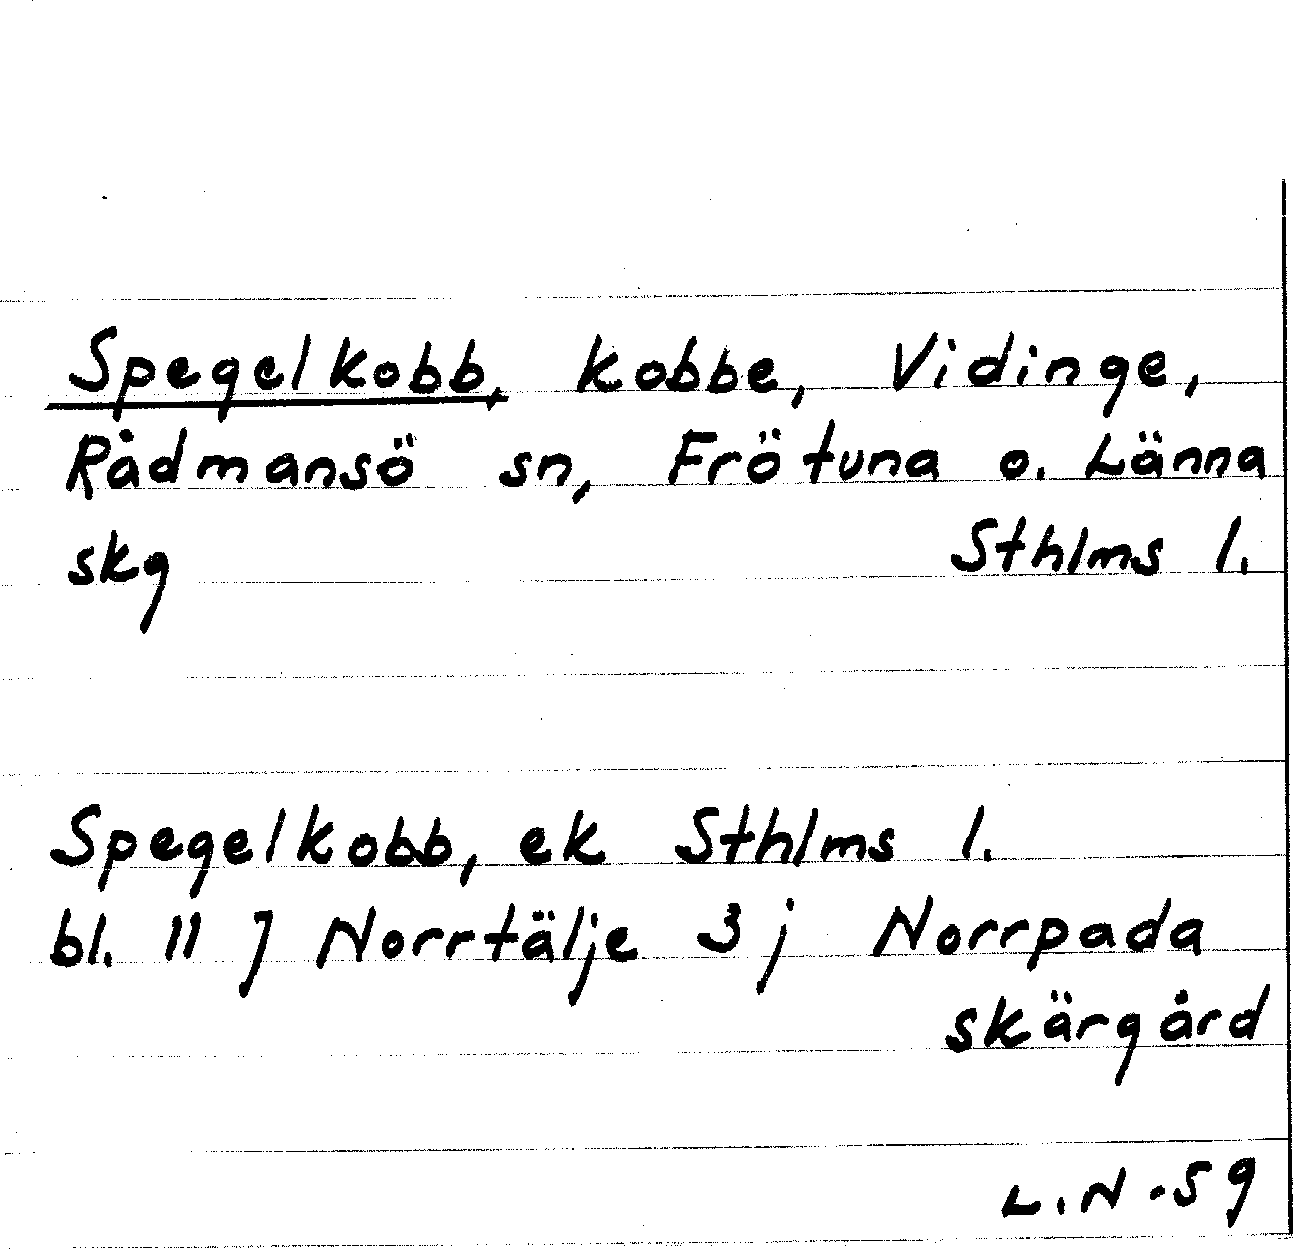 Spegelkobb, kobbe, Vidinge,
Rådmansö sn, Frötuna o. Länna
skg Sthlms l.
Spegelkobb, ek Sthlms l.
bl. 11 J Norrtälje 3 j Norrpada
skärgård
L.N -59